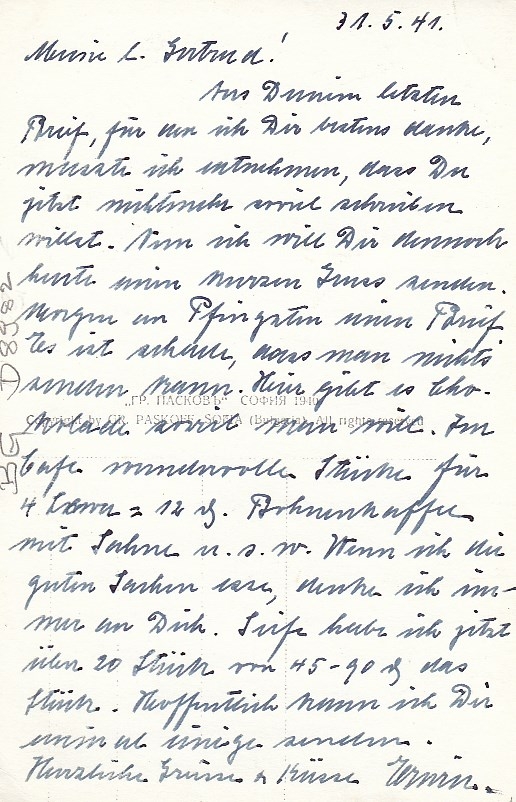 31. 5. 41.
Meine l. Gertrud!
Aus Deinem letzten
Brief, für den ich Dir bestens danke,
musste ich entnehmen, dass Du
jetzt nichtmehr soviel schreiben
willst. Nun ich will Dir dennoch
heute einen kurzen Gruss senden.
Morgen an Pfingsten einen Brief
Es ist schade, dass man nichts
senden kann. Hier gibt es Cho-
„ГР. ПАСКОВЪ“ СОФИЯ 1940
Copyright by GR. PASKOFF, SOFIA (Bulgaria). All rights reserved
kolade soviel man will. Im
Cafe wundervolle Stücke für
4 Lewa = 12 ₰. Bohnenkaffee
mit Sahne u. s. w. Wenn ich die
guten Sachen esse, denke ich im-
mer an Dich. Seife habe ich jetzt
über 20 Stück von 45-90 ₰ das
Stück. Hoffentlich kann ich Dir
einmal einige senden.
Herzliche Grüsse & Küsse Erwin.
BG D8982